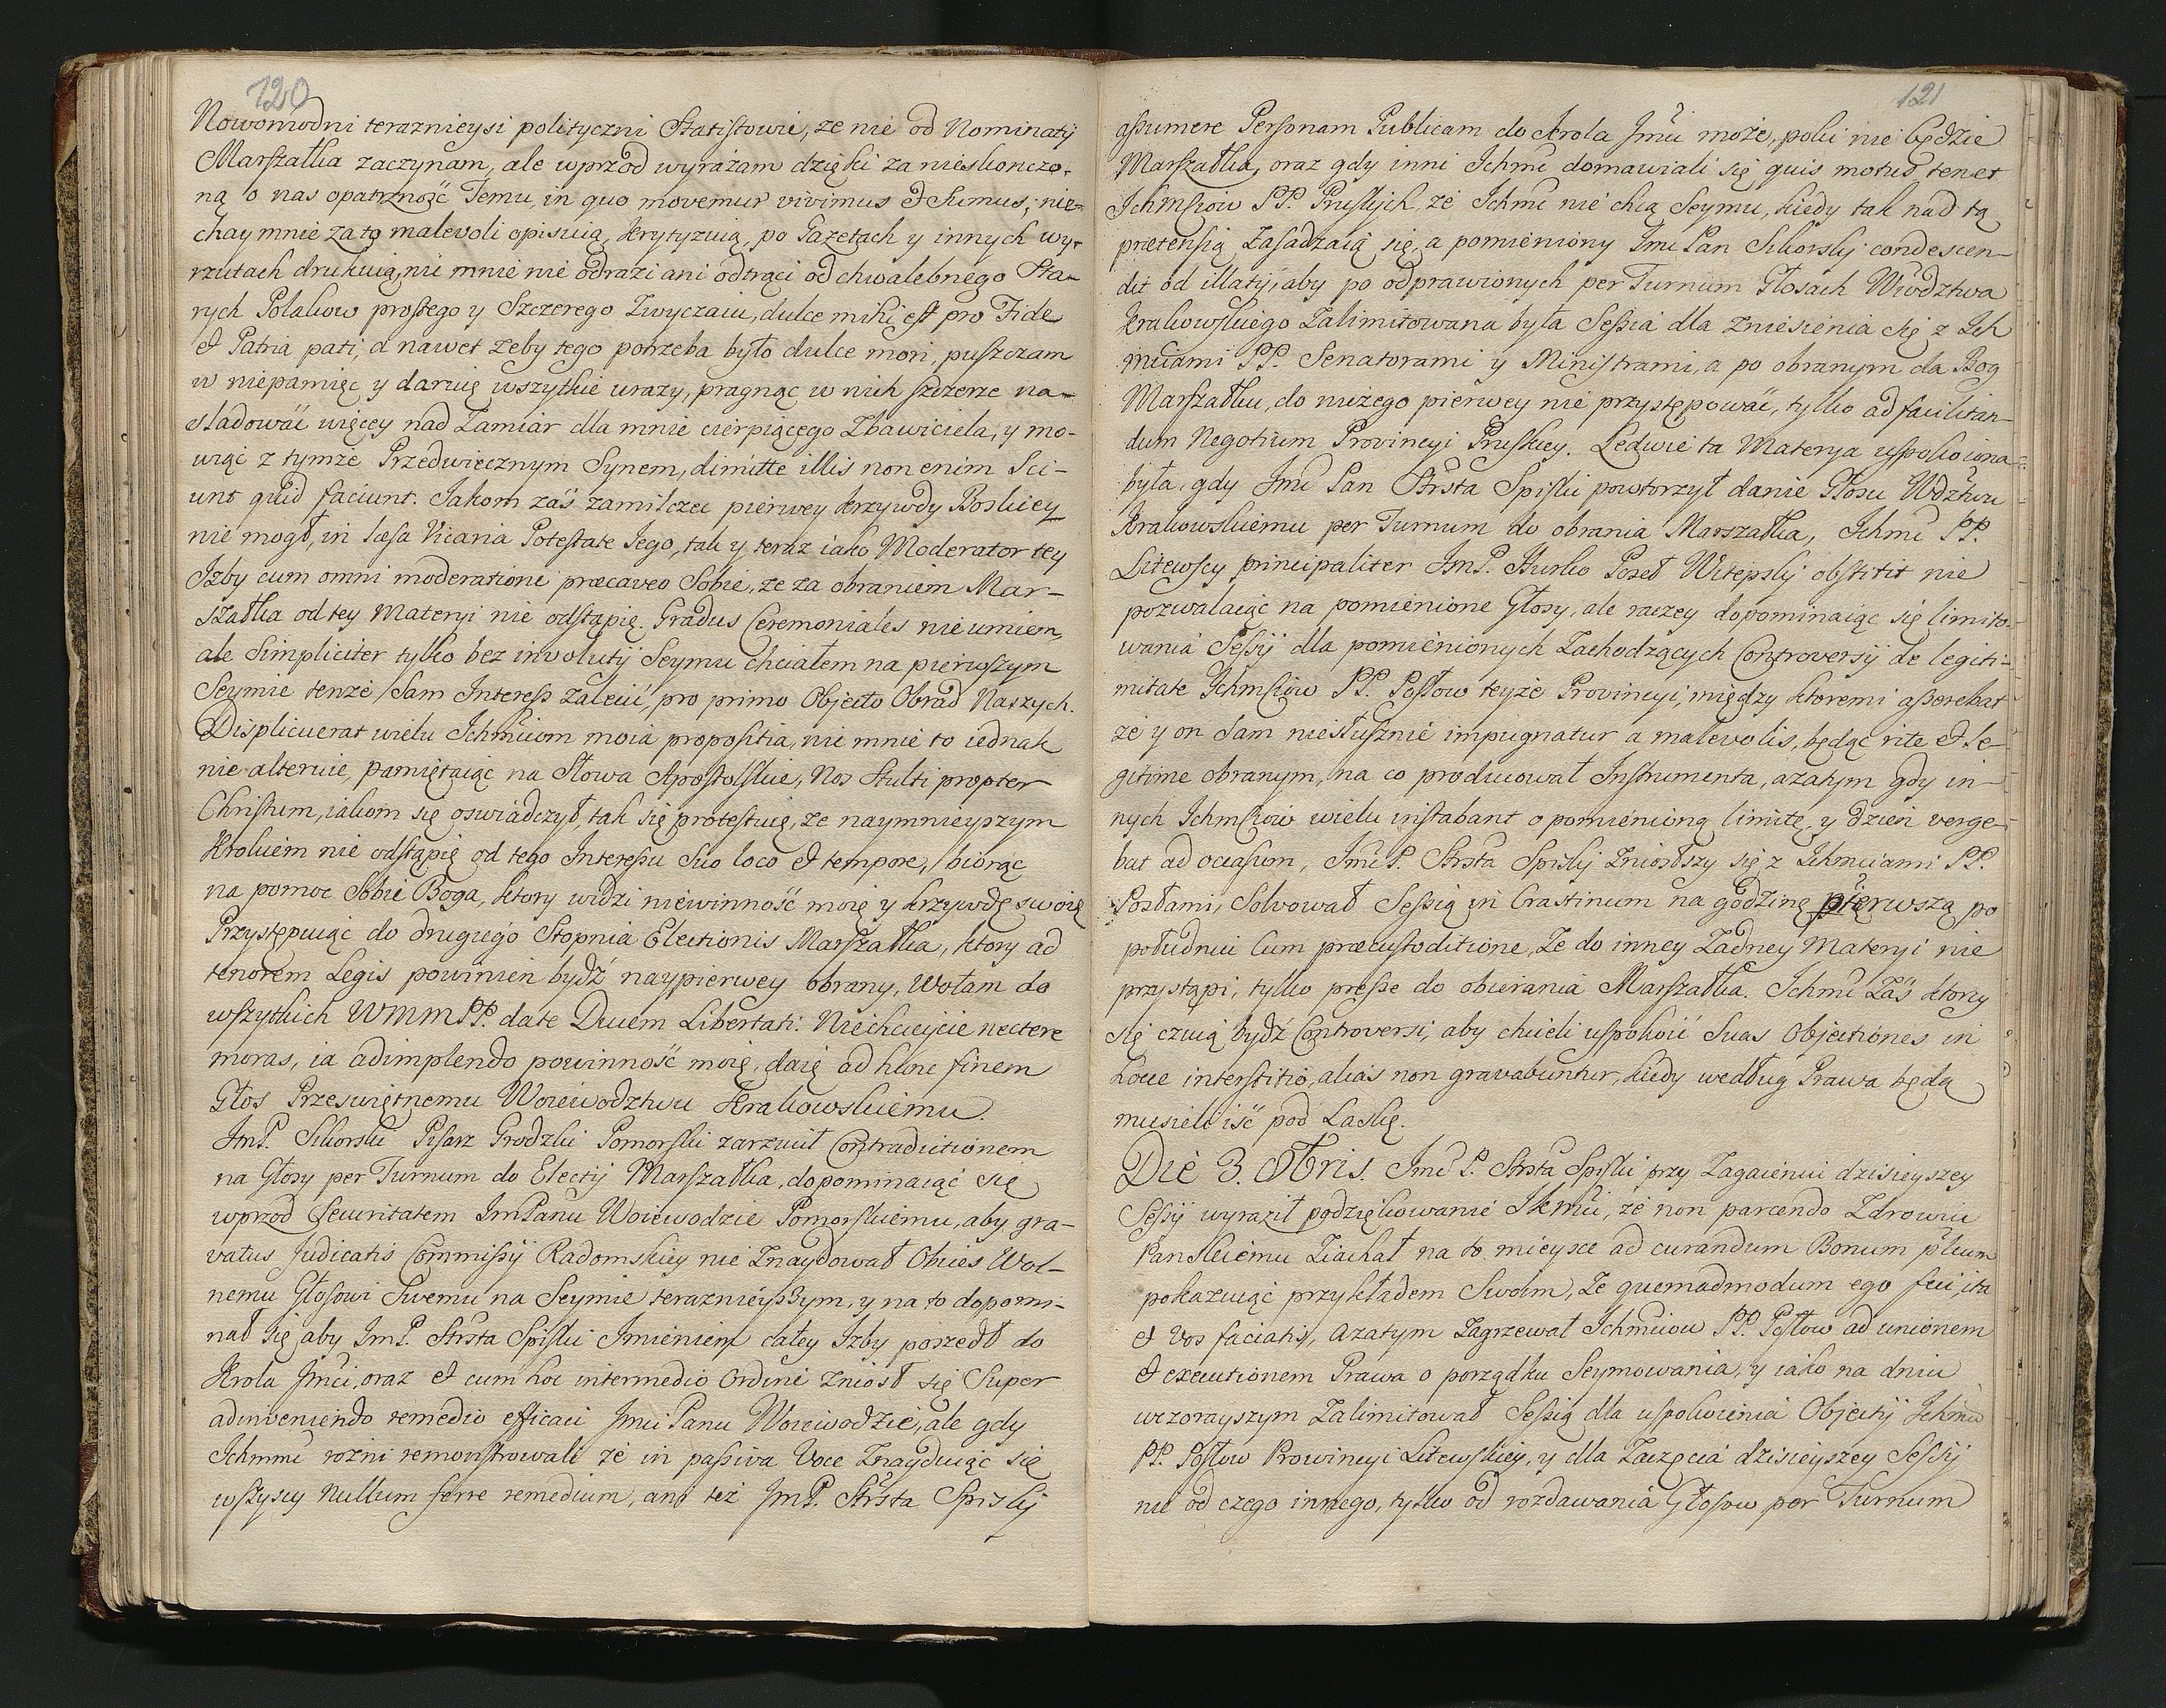 120
Nowomodni teraznieysi polityczni Statistowie, ze nie od Nominatÿ
Marszałka zaczynam, ale wprzod wyrażam dzięki za nieskonczo-
ną o nas opatrzność Temu, in quo movemur vivimus et sumus; nie-
chay mnie za to malevoli opisuią, krytyzuią, po Gazetach y innych wy-
rzutach drukuią, nic mnie nie odrazi ani odtrąci od chwalebnego Sta-
rych Polakow prostego y Szczerego Zwyczaiu, dulce mihi est pro Fide
et Patria pati, a nawet zeby tego potrzeba było dulce mori, puszczam
w niepamięc y daruię wszytkie urazy, pragnąc w nich szczerze na-
sladować więcey nad Zamiar dla mnie cierpiącego Zbawiciela, y mo-
wiąc z tymże Przedwiecznym Synem, dimitte illis non enim Sci-
unt quid faciunt. Jakom zaś zamilczeć pierwey krzywdy Boskiey
nie mogł, in læsa Vicaria Potestate Jego, tak y teraz iako Moderator tey
Izby cum omni moderatione præcaveo Sobie, ze za obraniem Mar-
szałka od tey Materyi nie odstąpię. Gradus Ceremoniales nie umiem,
ale Simpliciter tylko bez involutÿ Seymu chciałem na pierwszym
Seymie tenże Sam Interess zalecić, pro primo Objecto Obrad Naszych.
Displicuerat wielu Ichmciom moia propositia, nic mnie to iednak
nie alteruie, pamiętaiąc na Słowa Apostolskie, Nos Stulti propter
Christum, iakom się oswiadczył, tak się protestuię, ze naymnieyszym
krokiem nie odstąpię od tego Interessu Suo loco et tempore, biorąc
na pomoc Sobie Boga, ktory widzi niewinność moię y krzywdę swoię
Przystępuiąc do drugiego Stopnia Electionis Marszałka, ktory ad
tenorem Legis powinien bydź naypierwey obrany, Wołam do
wszytkich WMMPP. date Ducem Libertati. Niechcieycie nectere
moras, ia adimplendo powinność moię, daię ad hunc finem
Głos Przeswiętnemu Woiewodztwu Krakowskiemu.
JmP. Sikorski Pisarz Grodzki Pomorski zarzucił Contradictionem
na Głosy per Turnum do Electÿ Marszałka, dopominaiąc się
wprzod Securitatem Jm Panu Woiewodzie Pomorskiemu, aby gra-
vatus Judicatis Commissÿ Radomskiey nie Znaydował Obices Wol-
nemu Głosowi Swemu na Seymie teraznieyszym, y na to dopomi-
nał się, aby JmP. Strsta Spiski Imieniem całey Izby poszedł do
Krola Jmci, oraz et cum hoc intermedio Ordine zniosł się Super
adinveniendo remedio efficaci Jmci Panu Woiewodzie, ale gdy
Ichmmć rożni remonstrowali że in passiva Voce Znayduiąc się
wszyscy Nullum ferre remedium, ani też JmP. Strsta Spiskÿ
121
assumere Personam Publicam do Krola Jmći może, poki nie będzie
Marszałka, oraz gdy inni Ichmć domawiali się quis motus tenet
Ichmściow PP. Pruskich, ze Ichmć nie chcą Seymu, kiedy tak nad tą
prætensią Zasadzaią się, a pomieniony Jmć Pan Sikorskÿ condescen-
dit od illatÿ, aby po odprawionych per Turnum Głosach Wwodztwa
Krakowskiego Zalimitowana była Sessia dla Zniesienia się z Ich
mciami PP. Senatorami y Ministrami, a po obranym da Bog
Marszałku, do niczego pierwey nie przystępować, tylko ad facilitan-
dum Negotium Provincyi Pruskiey. Ledwie ta Materya uspokoiona
była, gdy Jmć Pan Strsta Spiski powtorzył danie Głosu Wdztwu
Krakowskiemu per Turnum do obrania Marszałka, Ichmć PP.
Litewscy principaliter JmP. Hurko Poseł Witepskÿ obstitit nie
pozwalaiąc na pomienione Głosy, ale raczey dopominaiąc się limito-
wania Sessÿ dla pomienionych Zachodzących Controversÿ de legiti-
mitate Ichmściow PP. Posłow teyże Provincyi, między ktoremi asserebat
że y on Sam niesłusznie impugnatur a malevolis, będąc rite et le-
gitime obranym, na co producował Instrumenta, azatym gdy in-
nych Ichmściow wielu instabant o pomienioną limitę, y dzień verge-
bat ad occasum, Jmć P. Strsta Spiskÿ Zniosłszy się z Ichmciami PP.
Posłami, Solwował Sessią in Crastinum na godzinę pierwszą po
południu Cum præcustoditione, Ze do inney Zadney Materyi nie
przystąpi, tylko presse do obierania Marszałka. Ichmć Zaś ktorzy
się czuią bydź Controversi, aby chcieli uspokoić Suas Objectiones in
hocce interstitio, alias non gravabuntur, kiedy według Prawa będą
musieli iść pod Laskę.
Die 3. 8bris. Jmć P. Strsta Spiski przy Zagaieniu dzisieyszey
Sessÿ wyraził podziękowanie JKmći, że non parcendo Zdrowiu
Panskiemu Ziachał na to mieysce ad curandum Bonum plcum
pokazuiąc przykładem Swoim, Ze quemadmodum ego feci, ita
et Vos faciatis, azatym Zagrzewał Ichmciow PP. Posłow ad unionem
et executionem Prawa o porządku Seymowania, y iako na dniu
wczorayszym Zalimitował Sessią dla uspokoienia Objectÿ Ichmć
PP. Posłow Prowincyi Litewskiey, y dla Zaczęcia dzisieyszey Sessÿ
nie od czego innego, tylko od rozdawania Głosow per Turnum